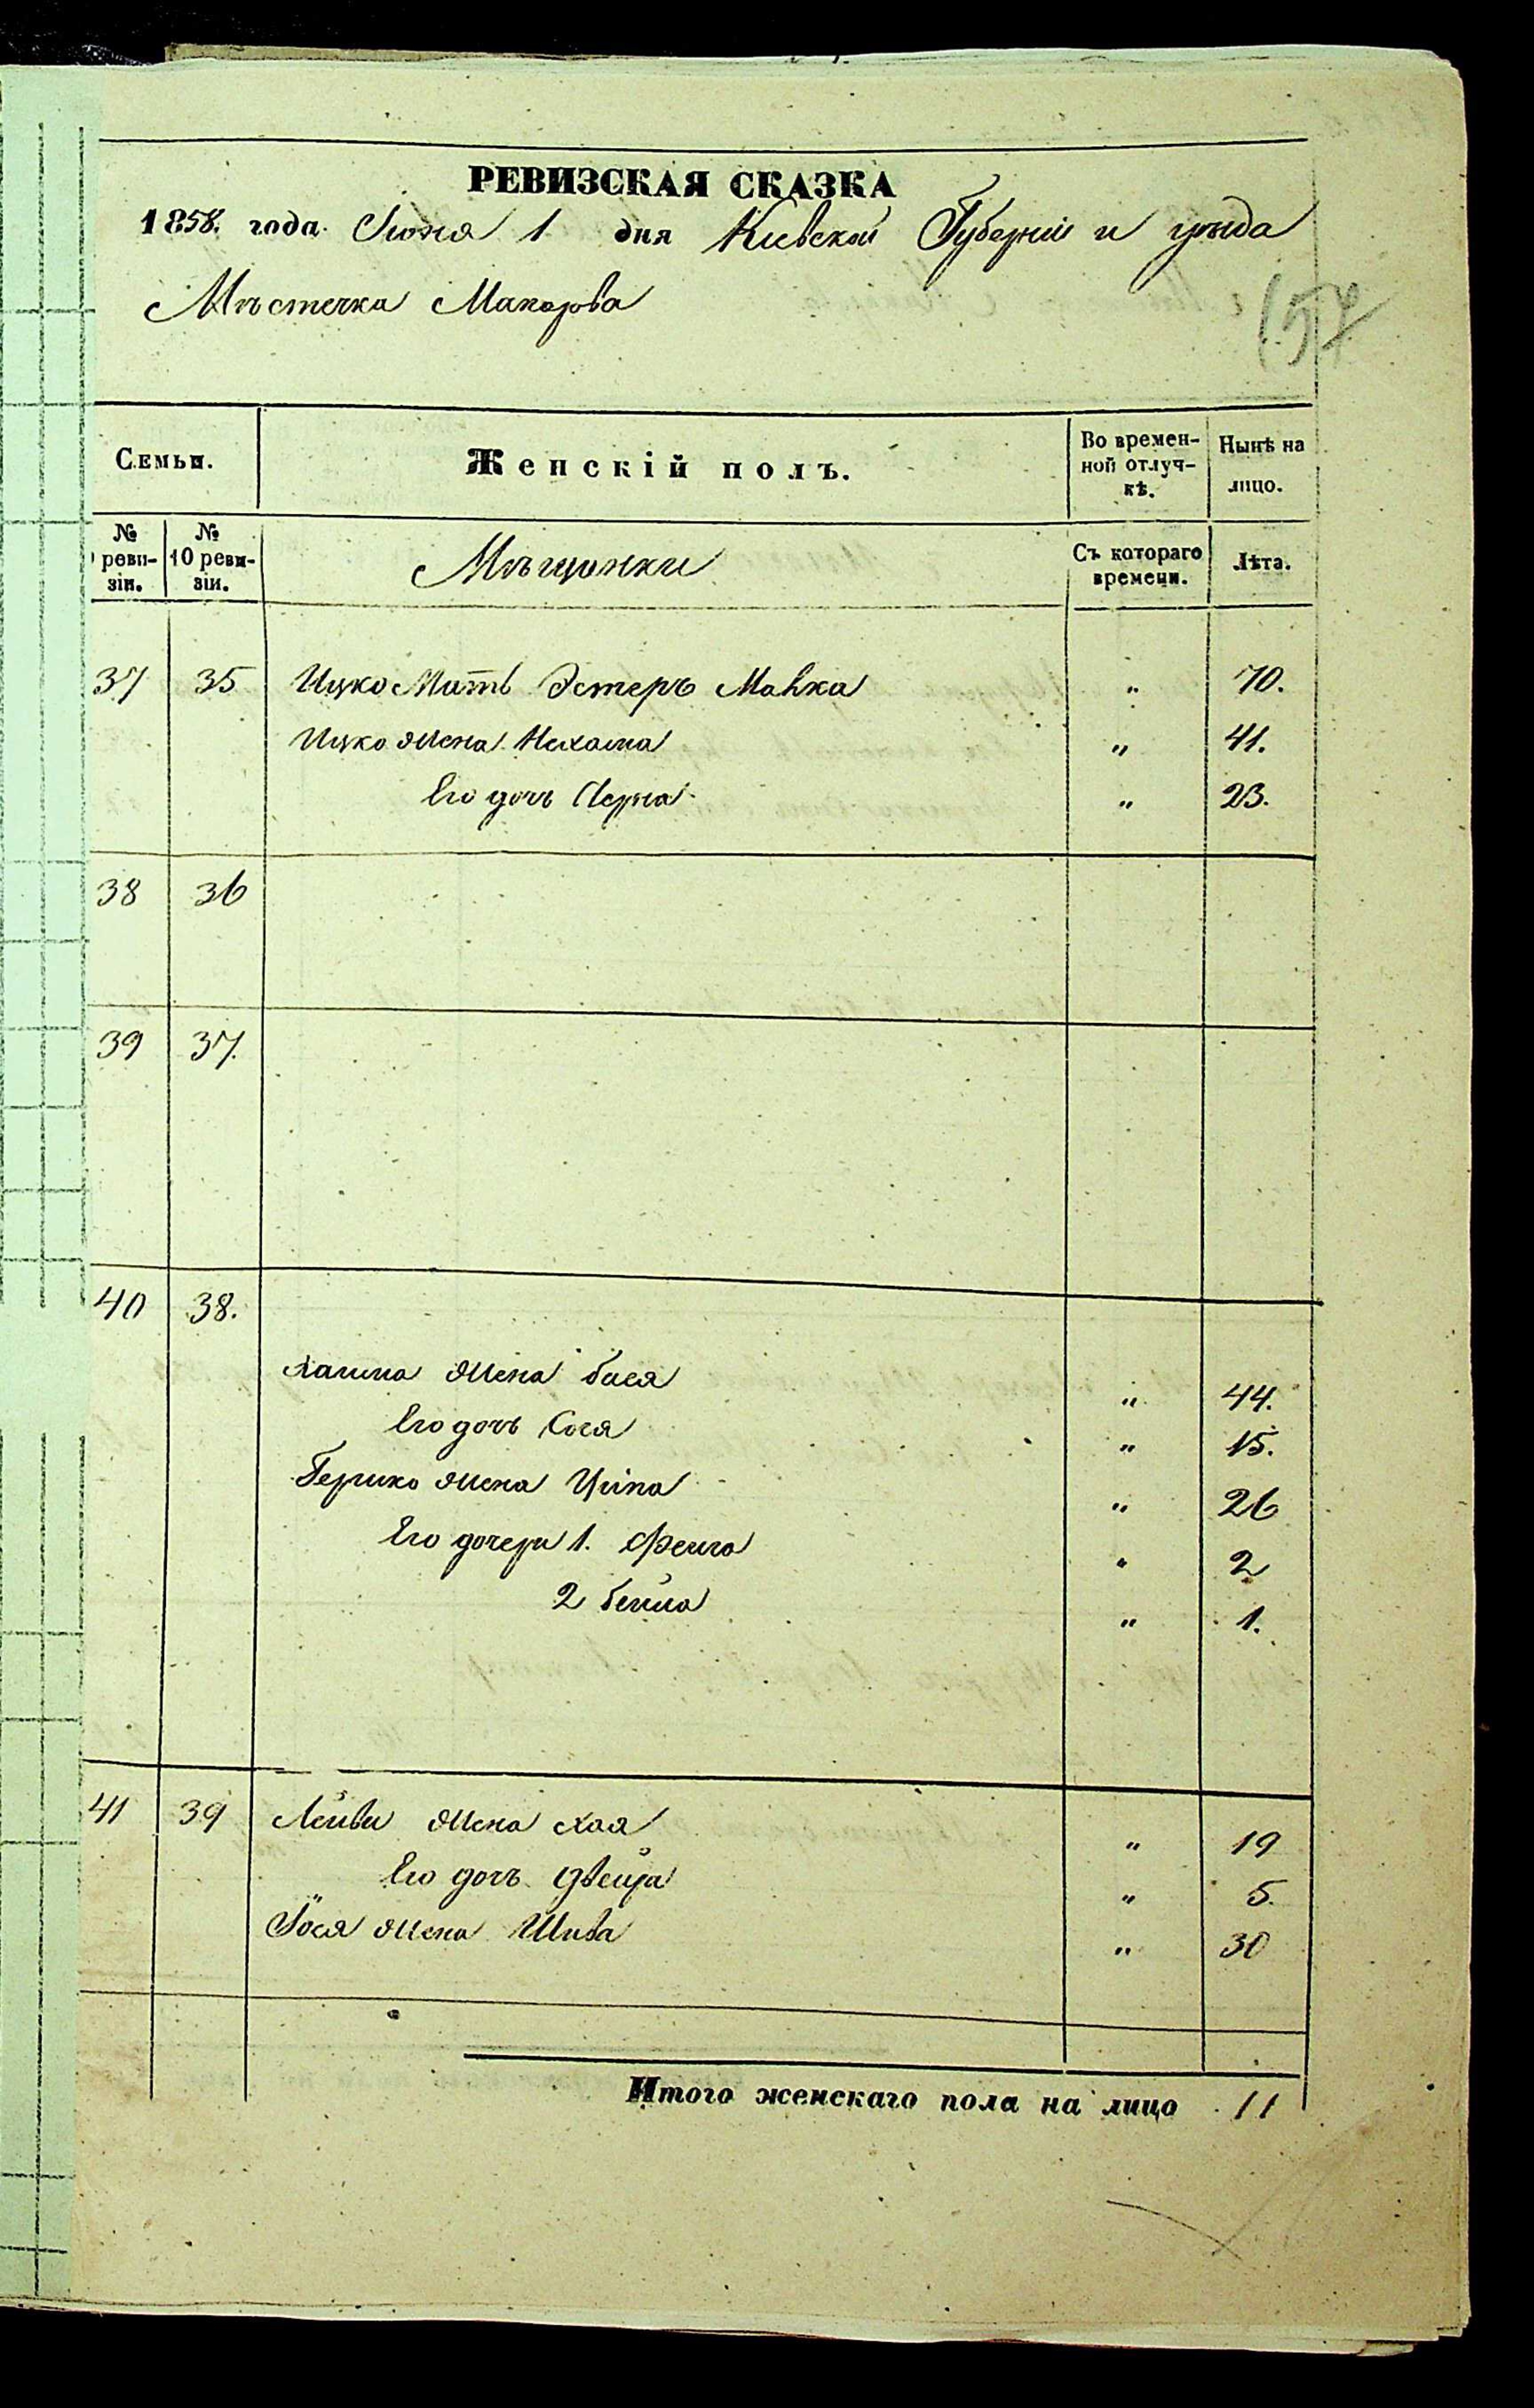 РЕВИЗСКАЯ СКАЗКА
1858. года Июня 1 дня Киевской Губерніи и уѣзда
Мѣстечка Макарова
Семьи. Женскій полъ. Во временной отлучкѣ. Нынѣ на лицо.
№ ревизіи. № 10 ревизіи. Мѣщанки Съ котораго времени. Лѣта.
37 35 Ицко Мать Эстеръ Малка " 70.
Ицко жена Нехама " 41.
Его дочь Перла " 23.
38 36
39 37.
40 38.
Хаима жена Бася " 44.
Его дочь Сося " 15.
Бершко жена Ципа " 26
Его дочери 1. Фейга " 2
2 Бейла " 1.
41 39 Лейви жена Хая " 19
Его дочь Двейра " 5.
Іося жена Шива " 30
Итого женскаго пола на лицо 11